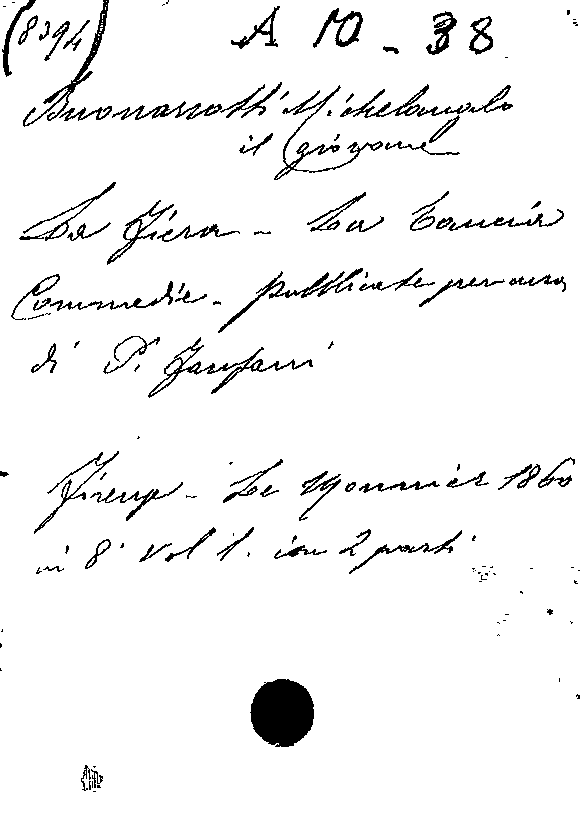 (8394) A 10 - 38
Buonarrotti Michelangelo
il giovane
La Fiera - La Tancia
Commedie - pubblicate per cura
di P. Fanfani
Firenze - Le Monnier 1860
in 8° Vol 1. in 2 parti